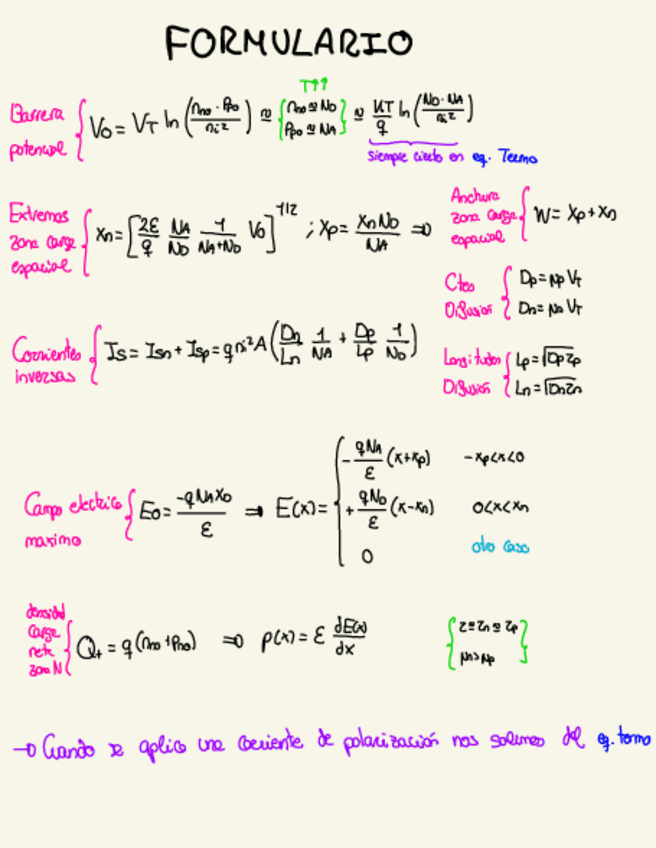 FORMULARIO
T↑↑
Barrera potencial { V₀ = V_T ln (n_no · P_po / n_i²) ≅ { n_no ≅ N_D, P_po ≅ N_A } ≅ KT/q ln (N_D · N_A / n_i²)
siempre cierto en eq. Termo
Extremos zona carga espacial { x_n = [2ε/q N_A/N_D 1/(N_A+N_D) V₀]^1/2 ; x_p = x_n N_D / N_A ⇒
Anchura zona carga espacial { W = x_p + x_n
Ctes Difusión { D_p = μ_p V_T
D_n = μ_n V_T
Corrientes inversas { I_s = I_sn + I_sp = q n_i² A (D_n/L_n 1/N_A + D_p/L_p 1/N_D)
Longitudes Difusión { L_p = √D_p τ_p
L_n = √D_n τ_n
Campo electrico maximo { E₀ = -q N_A x₀ / ε ⇒ E(x) = {
-q N_A/ε (x+x_p) -x_p<x<0
+q N_D/ε (x-x_n) 0<x<x_n
0 otro caso
densidad carga neta zona N { Q_t = q (n_no + p_no) ⇒ ρ(x) = ε dE(x)/dx
{ τ ≅ τ_n ≅ τ_p
μ_n > μ_p }
→ Cuando se aplica una corriente de polarización nos salimos del eq. termo